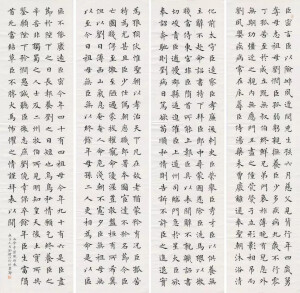 臣密言臣以險釁夙遭閔凶生孩六月慈父見背行年四歲舅
奪母志祖母劉愍臣孤弱躬親撫養臣少多疾病九歲不行零
丁孤苦至於成立既無伯叔終鮮兄弟門衰祚薄晚有兒息外
無期功強近之親內無應門五尺之僮煢煢孑立形影相弔而
劉夙嬰疾病常在床蓐臣侍湯藥未嘗廢離逮奉聖朝沐浴清
化前太守臣逵察臣孝廉後刺史臣榮舉臣秀才臣以供養無
主辭不赴命詔書特下拜臣郎中尋蒙國恩除臣洗馬猥以微
賤當侍東宮非臣隕首所能上報臣具以表聞辭不就職詔書
切峻責臣逋慢郡縣逼迫催臣上道州司臨門急於星火臣欲
奉詔奔馳則劉病日篤欲苟順私情則告訴不許臣之進退實
為狼狽伏惟聖朝以孝治天下凡在故老猶蒙矜育況臣孤苦
特為尤甚且臣少仕偽朝歷職郎署本圖宦達不矜名節今臣
亡國賤俘至微至陋過蒙拔擢寵命優渥豈敢盤桓有所希冀
但以劉日薄西山氣息奄奄人命危淺朝不慮夕臣無祖母無
以至今日祖母無臣無以終餘年母孫二人更相為命是以區
區不能廢遠臣密今年四十有四祖母今年九十有六是臣盡
節於陛下之日長報養劉之日短也烏鳥私情願乞終養臣之
辛苦非獨蜀之人士及二州牧伯所見明知皇天后土實所共
鑒願陛下矜愍愚誠聽臣微志庶劉僥倖保卒餘年臣生當隕
首死當結草臣不勝犬馬怖懼之情謹拜表以聞